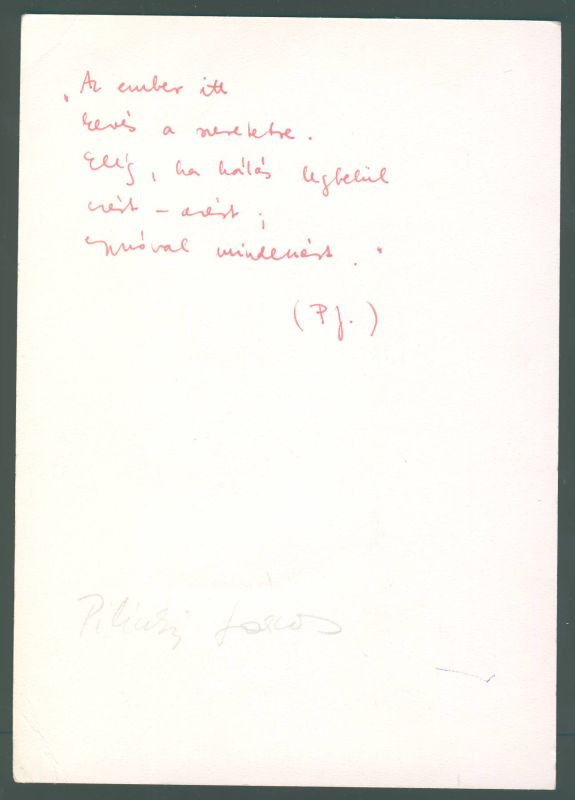 „Az ember itt
kevés a szeretetre.
Elég, ha hálás legbelül
ezért–azért;
egyszóval mindenért."
(P J.)
Pilinszky János